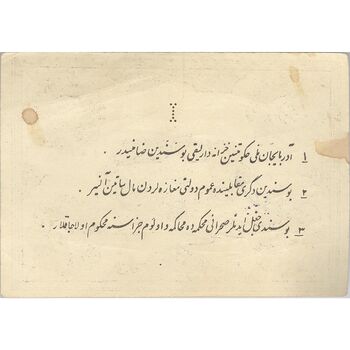 ۱ آذربایجان ملی حکومتنین خزانه داریقی بو سندین ضامنیدر.
۲ بو سندین دگری مقابلینده عموم دولتی مغازه لردن مال ساتین آلنیر.
۳ بو سندی جعل ایدنلر صحرائی محکمه ده محاکمه و اولوم جزاسنه محکوم اولاجاقلار.